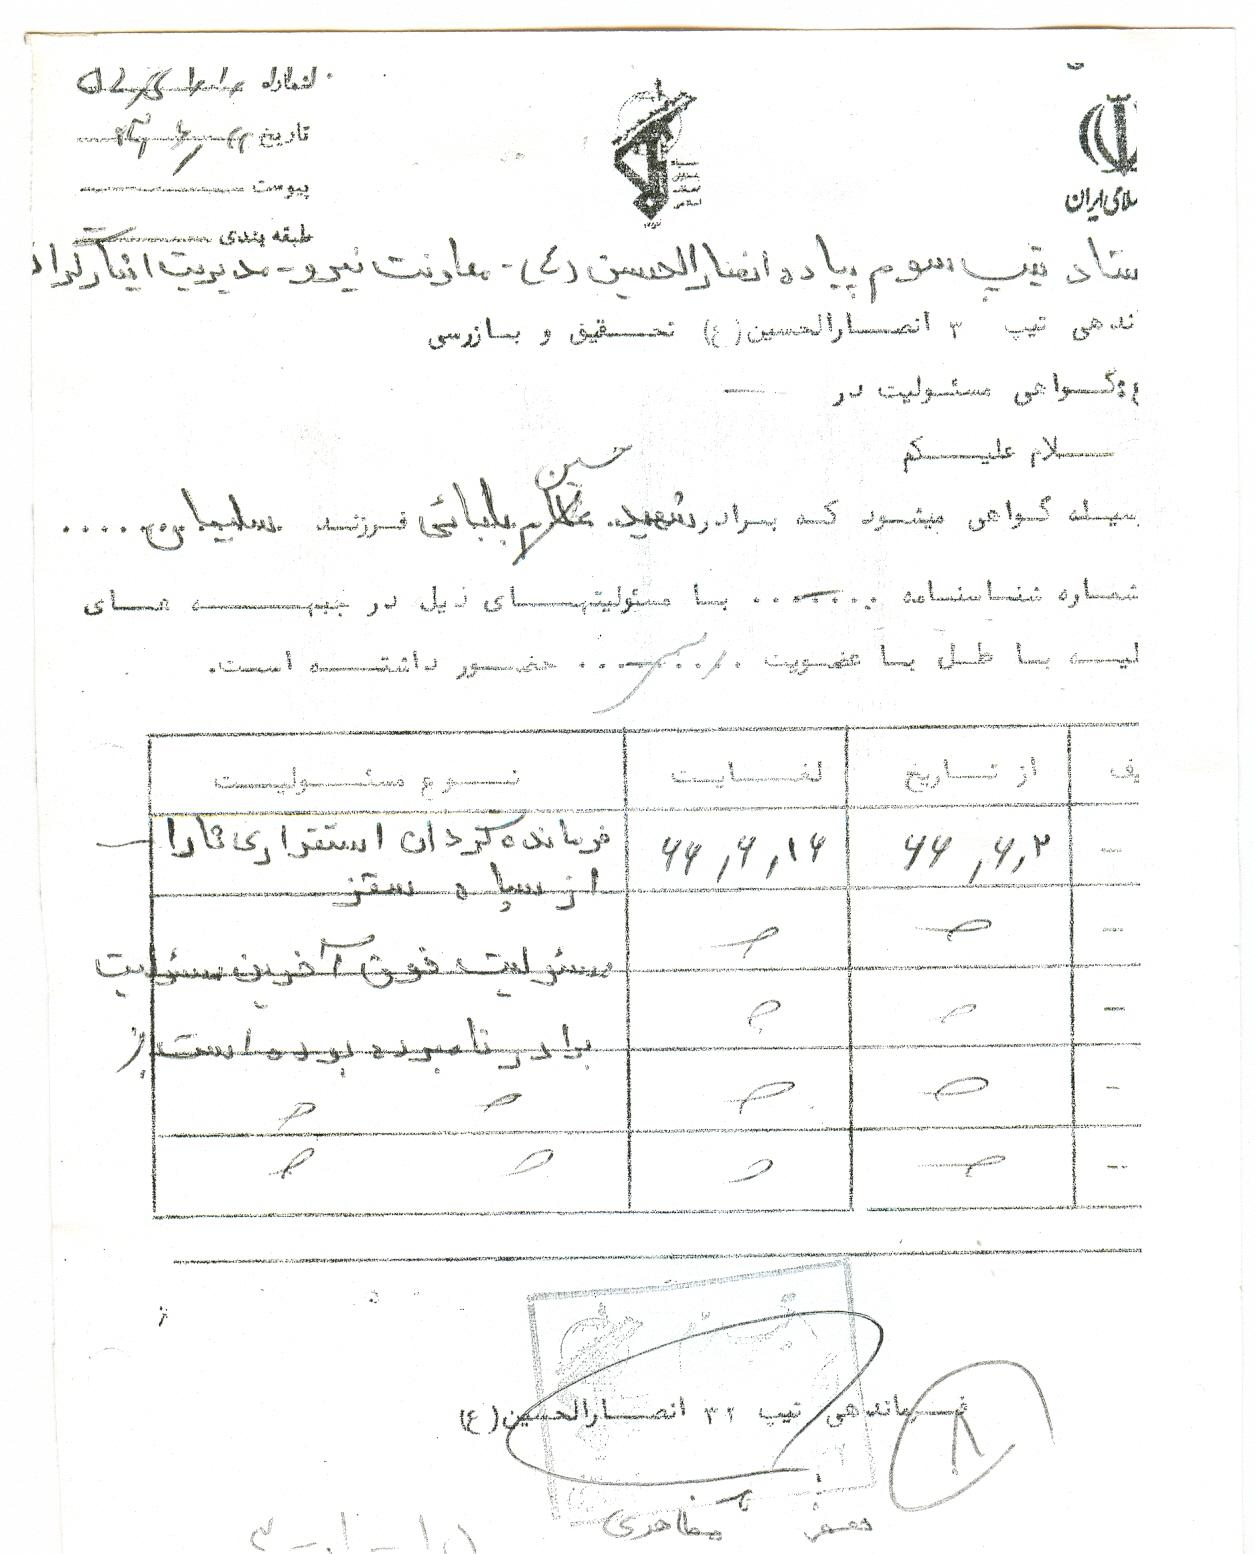 شماره
تاریخ
پیوست
طبقه بندی
سلامی ایران
ستاد تیپ سوم پیاده انصارالحسین (ع) - معاونت نیرو - مدیریت ایثارگران
ندهی تیپ ۳ انصارالحسین (ع) تحقیق و بازرسی
گواهی مسئولیت در
سلام علیکم
حسین
بسیله گواهی میشود که برادر شهید غلام بابائی فرزند سلیمان
شماره شناسنامه ........ با مسئولیتهای ذیل در جبهه های
با عضویت ........ حضور داشته است.
یف از تاریخ لغایت نوع مسئولیت
۶۶,۶,۲ ۶۶,۶,۱۶ فرمانده گردان استقراری ثارا
از سپاه سقز
مسئولیت فوق آخرین مسئولیت
برادر نامبرده بوده است
فرماندهی تیپ ۳۲ انصارالحسین (ع)
مظاهری